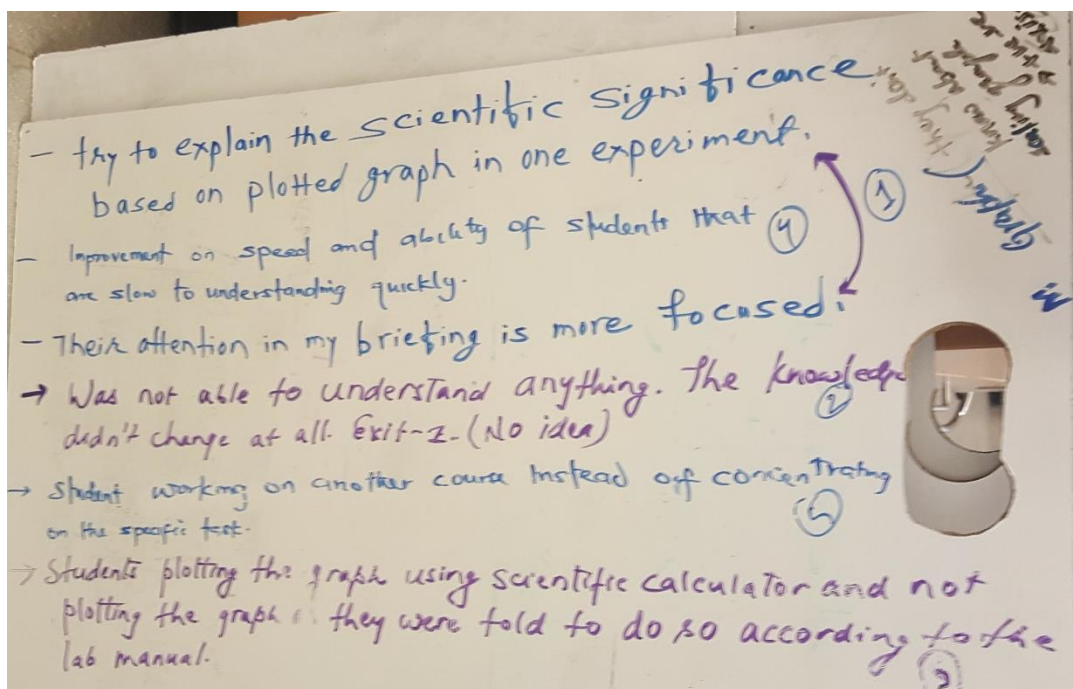 - try to explain the scientific significance
based on plotted graph in one experiment.
①
- Improvement on speed and ability of students that ④
are slow to understanding quickly.
- Their attention in my briefing is more focused.
→ Was not able to understand anything. The knowledge
didn't change at all. Exit-1-(No idea) ②
→ Student working on another course Instead off concentrating
on the specific task. ⑤
→ Students plotting the graph using scientific calculator and not
plotting the graph they were told to do so according to the
lab manual. ③
Graph
they don't
know about
graph